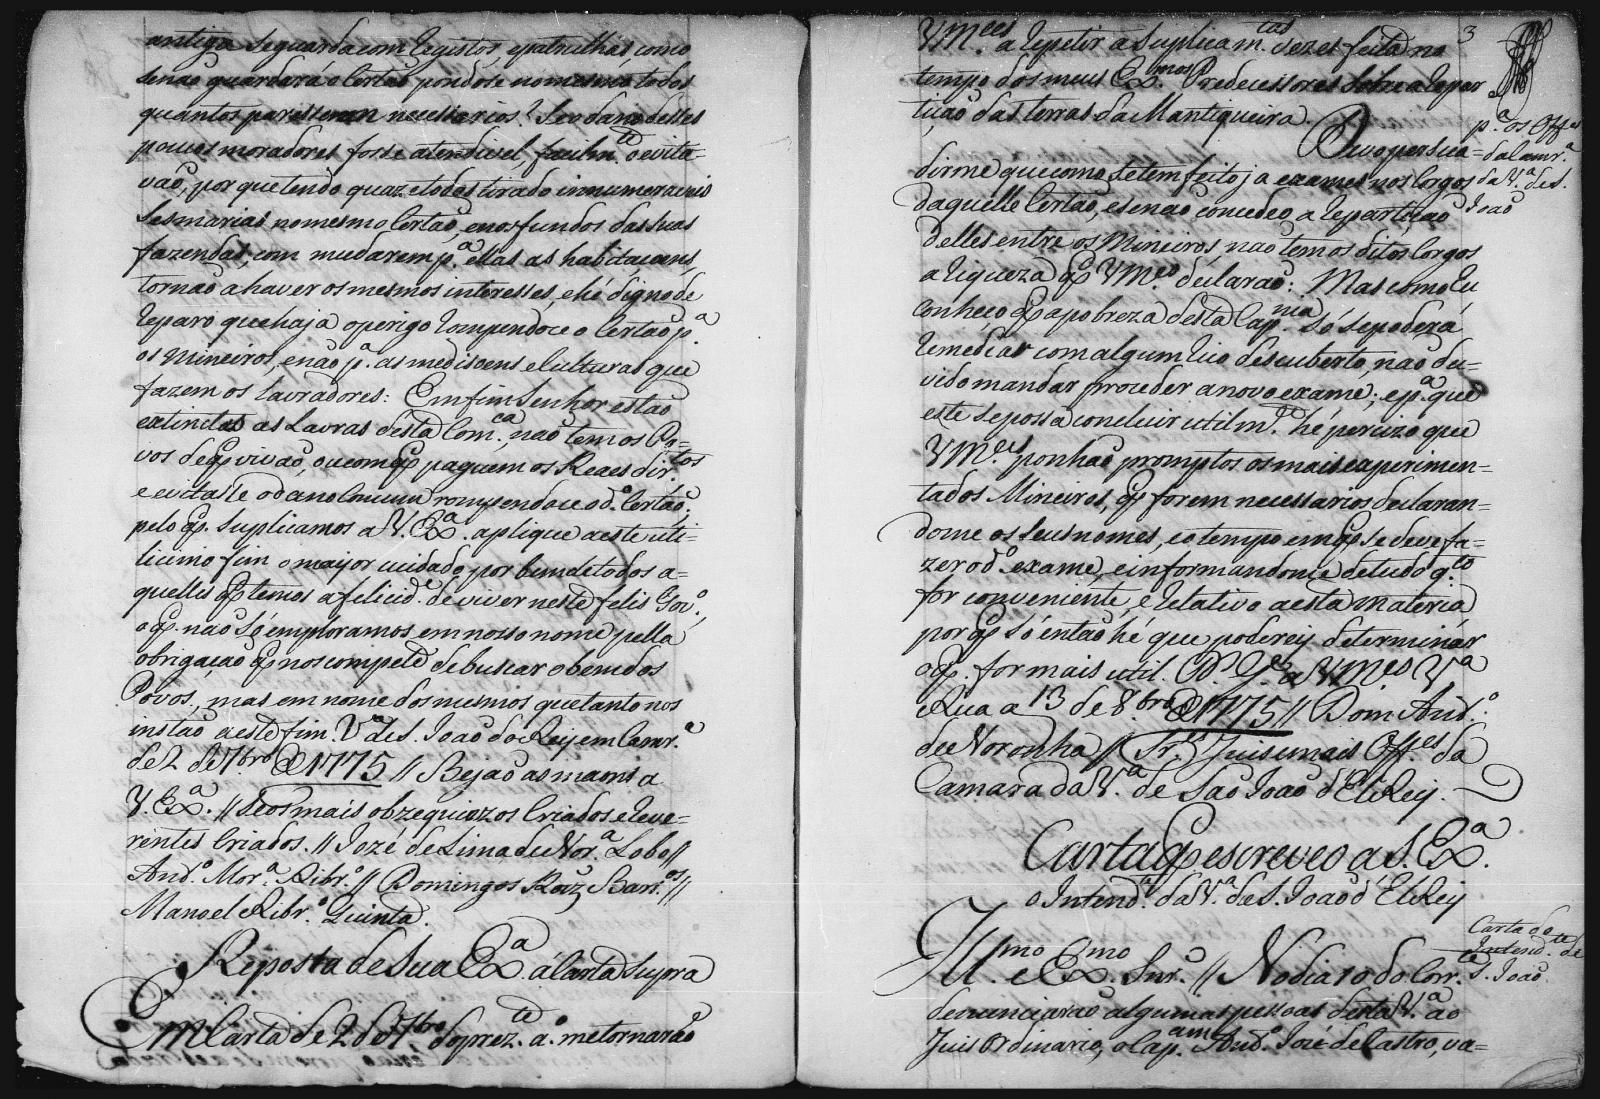 antiga se guarda com Registos, e patrulhas, como
senaõ guardará o Certaõ pondose no mesmo todos
quantos paressem necessarios? Seo dano delles
poucos moradores fosse atendivel, facilm.te o evita-
vaõ, por que tendo quaze todos tirado innumeraveis
Sesmarias no mesmo Certaõ, e nos fundos das suas
fazendas, com mudarem p.a ellas as habitacoens,
tornaõ a haver os mesmos interesses, e hé digno de
reparo que haja o perigo rompendoce o Certaõ p.a
os Mineiros, e naõ p.a as medisoens e Culturas que
fazem os Lavradores: Emfim Senhor estaõ
extinctas as Lavras desta Com.ca, naõ tem os Po-
vos de q vivaõ, ou com q paguem os Reaes dir.tos
e evitasse o dano Comum rompendoce o d.o Certaõ;
pelo q. Suplicamos a V. Ex.a aplique a este uti-
licimo fim o mayor cuidado, por bem de todos a-
quelles q temos a felicid.e de viver neste felis Gov.o,
o q. naõ Só emploramos em nosso nome pella
obrigaçaõ q nos compete de buscar o bem dos
Povos, mas em nome dos mesmos que tanto nos
instaõ a este fim. V.a de S. Joaõ do Rey em Cam.ra
de 2 de 7.bro de 1775 // Bejaõ as maons a
V. Ex.a // Seos mais obzequiozos Criados e Reve-
rentes Criados. // Jozé de Lima de Nor.a Lobo //
And.o Mor.a Ribr.o // Domingos Roiz Barr.os //
Manoel Ribr.o
Reposta de Sua Ex.a á Carta supra
Em Carta de 2 de 7.bro do prez.te a.o me tornaraõ
3
VM.ces a repetir a Suplica m.tas vezes feita no
tempo dos meus Ex.mos Predecessores Sobre a Repar
tiçaõ das terras da Mantiqueira.
p.a os Off.es
da Camr.a
da V.a de S.
Joaõ
Devo persua-
dirme que como se tem feito já exames nos Corgos
daquelle Certaõ, e senaõ concedeo a repartiçaõ
delles entre os Mineiros, naõ tem os ditos Corgos
a riqueza q VM.ces declaraõ: Mas como Eu
conheço q a pobreza desta Cap.nia Só se poderá
remediar com algum rico descuberto, naõ du-
vido mandar proceder a novo exame; e p.a que
este se possa concluir utilm.te hé percizo que
VM.ces ponhaõ promptos os mais experimen-
tados Mineiros, q forem necessarios declaran-
dome os seus nomes, e o tempo em q Se deve fa-
zer o d.o exame, e informandome de tudo q.to
for conveniente, e relativo a esta materia
por q só entaõ hé que poderey determinar
o q. for mais util. D.s G.e a VM.ces V.a
Rica a 13 de 8.bro de 1775 // Dom Ant.o
de Noronha // Sr.s Juis e mais Off.es da
Camara da V.a de Saõ Joaõ d'ElRey.
Carta q escreveo a S. Ex.a
o Intend.te da V.a de S. Joaõ d'ElRey
Carta do
Intend.te de
S. Joaõ
Ill.mo e Ex.mo Snr. // No dia 10 do Corr.te
denunciaraõ algumas pessoas desta V.a ao
Juis Ordinario, o Cap.am And.o José de Castro, va-